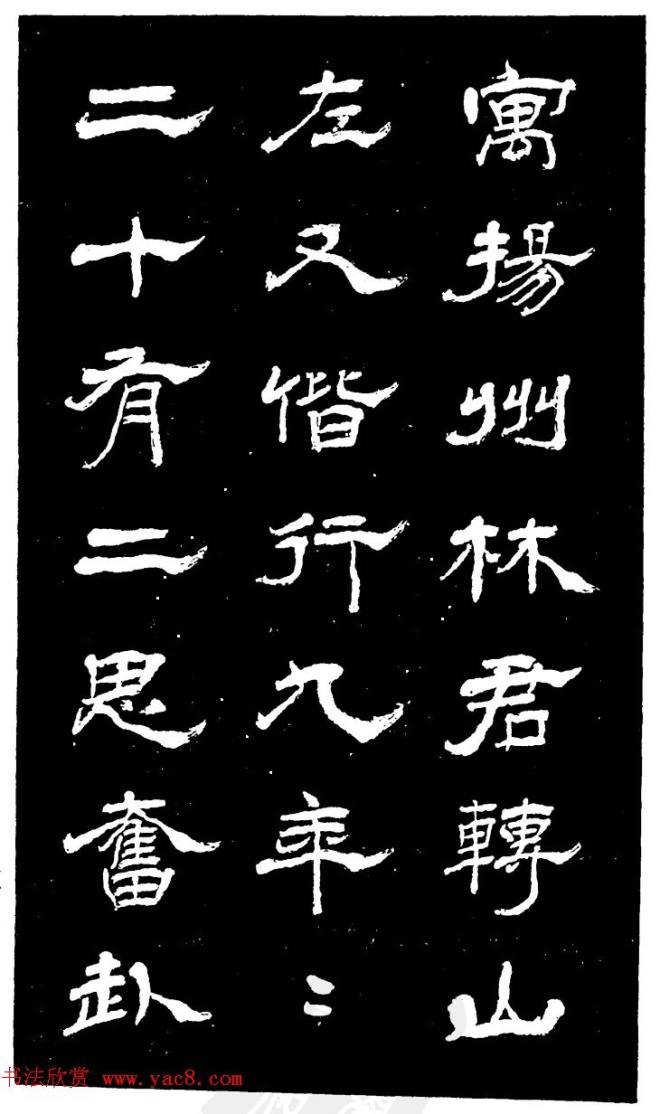 寓揚州林君轉山
左又偕行九年〻
二十有二思奮赴
书法欣赏 www.yac8.com